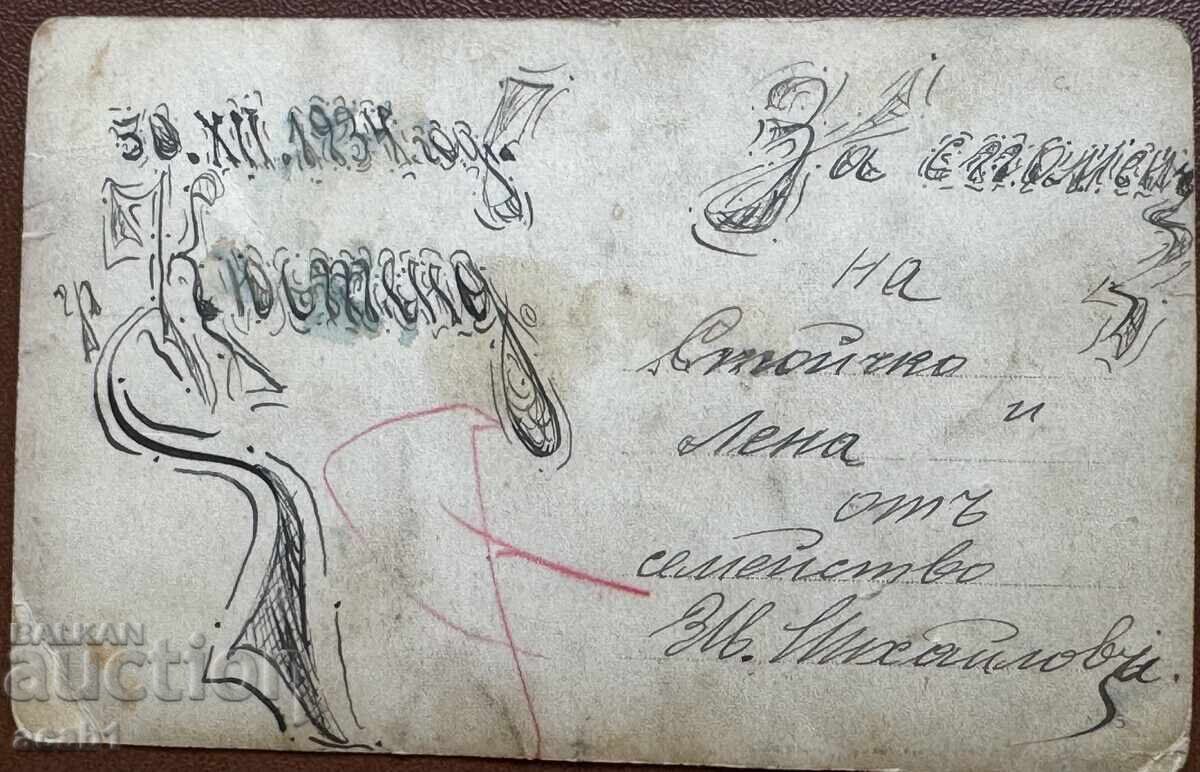 30.XII.1934 год.
гр.
Кюстендил
За спомен
на
Стойчко
и
Лена
отъ
семейство
Михайлови.
BALKAN
auction
acab1